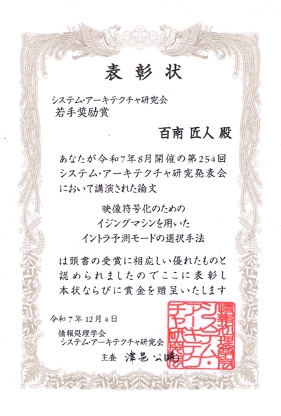 表彰状
システム・アーキテクチャ研究会
若手奨励賞
百南 匠人 殿
あなたが令和7年8月開催の第254回
システム・アーキテクチャ研究発表会
において講演された論文
映像符号化のための
イジングマシンを用いた
イントラ予測モードの選択手法
は頭書の受賞に相応しい優れたものと
認められましたのでここに表彰し
本状ならびに賞金を贈呈いたします
令和7年12月4日
情報処理学会
システム・アーキテクチャ研究会
主査 津邑 公暁